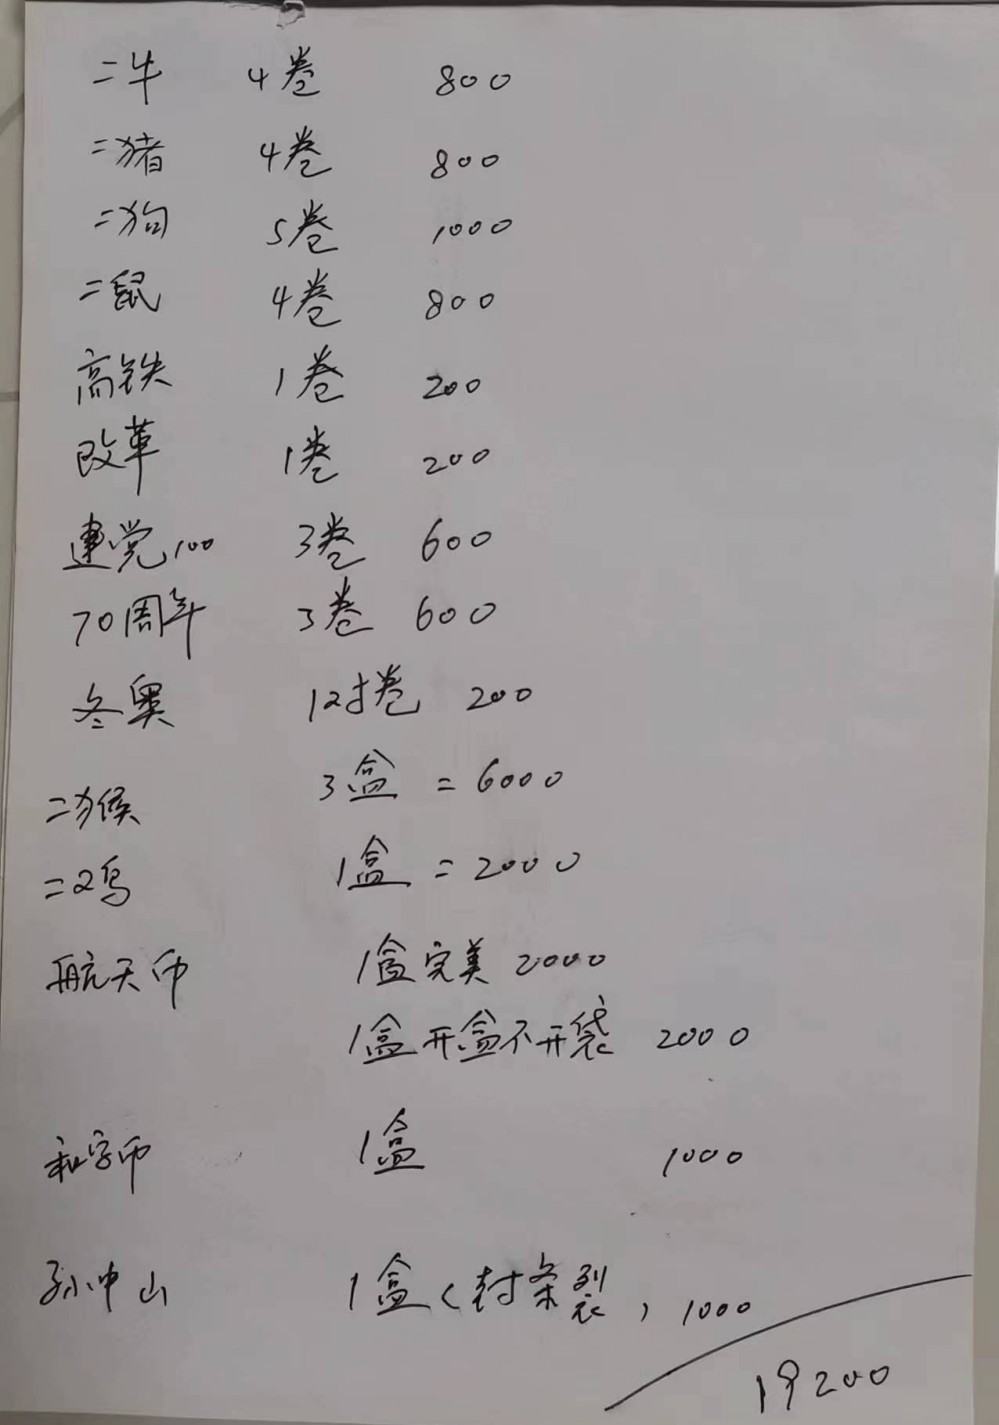 二牛 4卷 800
二猪 4卷 800
二狗 5卷 1000
二鼠 4卷 800
高铁 1卷 200
改革 1卷 200
建党100 3卷 600
70周年 3卷 600
冬奥 1对卷 200
二猴 3盒 = 6000
二鸡 1盒 = 2000
航天币 1盒完美 2000
1盒开盒不开袋 2000
和字币 1盒 1000
孙中山 1盒(封条裂) 1000
19200